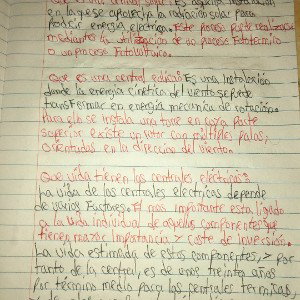 Que es una central solar: Es aquella instalación
en la que se aprovecha la radiación solar para
Producir energía eléctrica. Este proceso puede realizarse
mediante la utilización de un proceso fototermico
o un proceso Fotovoltaico.
Que es una central eolica: Es una instalación
donde la energía cinetica del viento se puede
transformar en energía mecanica de rotación.
Para ello se instala una torre en cuya parte
superior existe un rotor con múltiples palas,
orientadas en la direccion del viento.
Que vida tienen las centrales eléctricas:
La vida de las centrales electricas depende
de varios Factores. El mas importante esta ligado
a la vida individual de aquellos componentes que
tienen mayor importancia y coste de inversión.
La vida estimada de estos componentes, y por
tanto de la central, es de unos treinta años
por término medio para las centrales termicas,